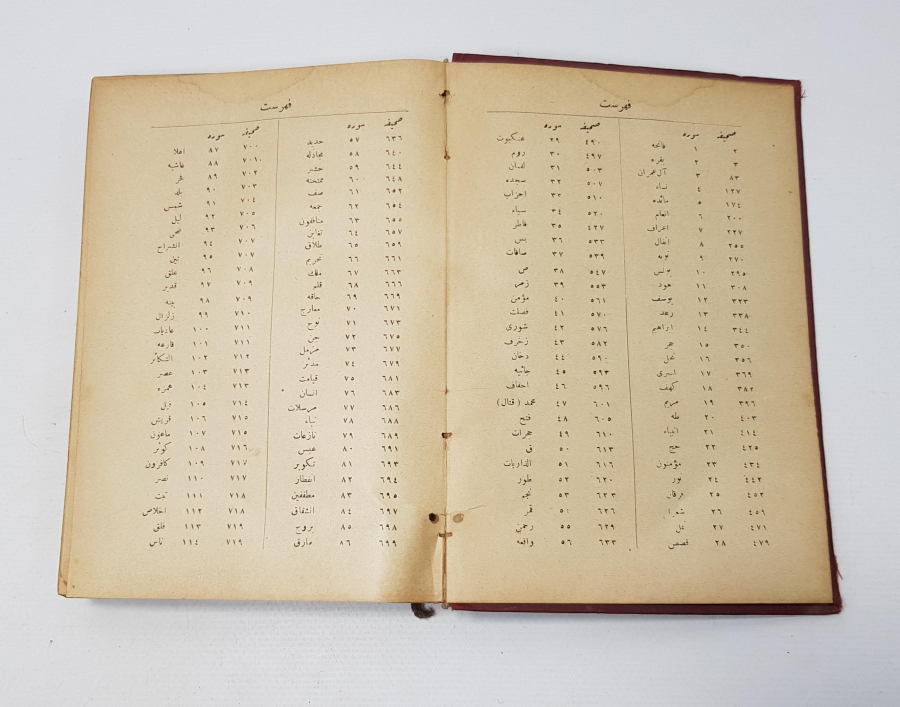 فهرست
صحیفه سوره
٢ ١ فاتحه
٣ ٢ بقره
٨٣ ٣ آل عمران
١٢٧ ٤ نساء
١٧٤ ٥ مائده
٢٠٠ ٦ انعام
٢٢٧ ٧ اعراف
٢٥٥ ٨ انفال
٢٧٠ ٩ توبه
٢٩٥ ١٠ یونس
٣٠٨ ١١ هود
٣٢٣ ١٢ یوسف
٣٣٨٠ ١٣ رعد
٣٤٤ ١٤ ابراهیم
٣٥٠ ١٥ حجر
٣٥٦ ١٦ نحل
٣٦٩ ١٧ اسری
٣٨٢ ١٨ کهف
٣٩٦ ١٩ مریم
٤٠٣ ٢٠ طه
٤١٤ ٢١ انبیاء
٤٢٥ ٢٢ حج
٤٣٤ ٢٣ مؤمنون
٤٤٢ ٢٤ نور
٤٥٢ ٢٥ فرقان
٤٥٩ ٢٦ شعرا
٤٧١ ٢٧ نمل
٤٧٩ ٢٨ قصص
صحیفه سوره
٤٩٠ ٢٩ عنکبوت
٤٩٧ ٣٠ روم
٥٠٣ ٣١ لقمان
٥٠٧ ٣٢ سجده
٥١٠ ٣٣ احزاب
٥٢٠ ٣٤ سباء
٤٢٧ ٣٥ فاطر
٥٣٣ ٣٦ یس
٥٣٩ ٣٧ صافات
٥٤٧ ٣٨ ص
٥٥٣ ٣٩ زمر
٥٦١ ٤٠ مؤمن
٥٧٠ ٤١ فصلت
٥٧٦ ٤٢ شوری
٥٨٢ ٤٣ زخرف
٥٩٠ ٤٤ دخان
٥٩٣ ٤٥ جاثیه
٥٩٦ ٤٦ احقاف
٦٠١ ٤٧ محمد (قتال)
٦٠٥ ٤٨ فتح
٦١٠ ٤٩ حجرات
٦١٣ ٥٠ ق
٦١٦ ٥١ الذاریات
٦٢٠ ٥٢ طور
٦٢٣ ٥٣ نجم
٦٢٦ ٥٤ قمر
٦٢٩ ٥٥ رحمن
٦٣٣ ٥٦ واقعه
فهرست
صحیفه سوره
٦٣٦ ٥٧ حدید
٦٤٠ ٥٨ مجادله
٦٤٤ ٥٩ حشر
٦٤٨ ٦٠ ممتحنه
٦٥٢ ٦١ صف
٦٥٤ ٦٢ جمعه
٦٥٥ ٦٣ منافقون
٦٥٧ ٦٤ تغابن
٦٥٩ ٦٥ طلاق
٦٦١ ٦٦ تحریم
٦٦٣ ٦٧ ملک
٦٦٦ ٦٨ قلم
٦٦٩ ٦٩ حاقه
٦٧١ ٧٠ معارج
٦٧٣ ٧١ نوح
٦٧٥ ٧٢ جن
٦٧٧ ٧٣ مزمل
٦٧٩ ٧٤ مدثر
٦٨١ ٧٥ قیامت
٦٨٣ ٧٦ انسان
٦٨٦ ٧٧ مرسلات
٦٨٨ ٧٨ نباء
٦٨٩ ٧٩ نازعات
٦٩١ ٨٠ عبس
٦٩٣ ٨١ تکویر
٦٩٤ ٨٢ انفطار
٦٩٥ ٨٣ مطففین
٦٩٧ ٨٤ انشقاق
٦٩٨ ٨٥ بروج
٦٩٩ ٨٦ طارق
صحیفه سوره
٧٠٠ ٨٧ اعلا
٧٠١ ٨٨ غاشیه
٧٠٢ ٨٩ فجر
٧٠٣ ٩٠ بلد
٧٠٤ ٩١ شمس
٧٠٥ ٩٢ لیل
٧٠٦ ٩٣ ضحی
٧٠٧ ٩٤ انشراح
٧٠٧ ٩٥ تین
٧٠٨ ٩٦ علق
٧٠٩ ٩٧ قدیر
٧٠٩ ٩٨ بینه
٧١٠ ٩٩ زلزال
٧١١ ١٠٠ عادیات
٧١١ ١٠١ قارعه
٧١٢ ١٠٢ التکاثر
٧١٣ ١٠٣ عصر
٧١٣ ١٠٤ همزه
٧١٤ ١٠٥ فیل
٧١٥ ١٠٦ قریش
٧١٥ ١٠٧ ماعون
٧١٦ ١٠٨ کوثر
٧١٧ ١٠٩ کافرون
٧١٧ ١١٠ نصر
٧١٨ ١١١ تبت
٧١٨ ١١٢ اخلاص
٧١٩ ١١٣ فلق
٧١٩ ١١٤ ناس